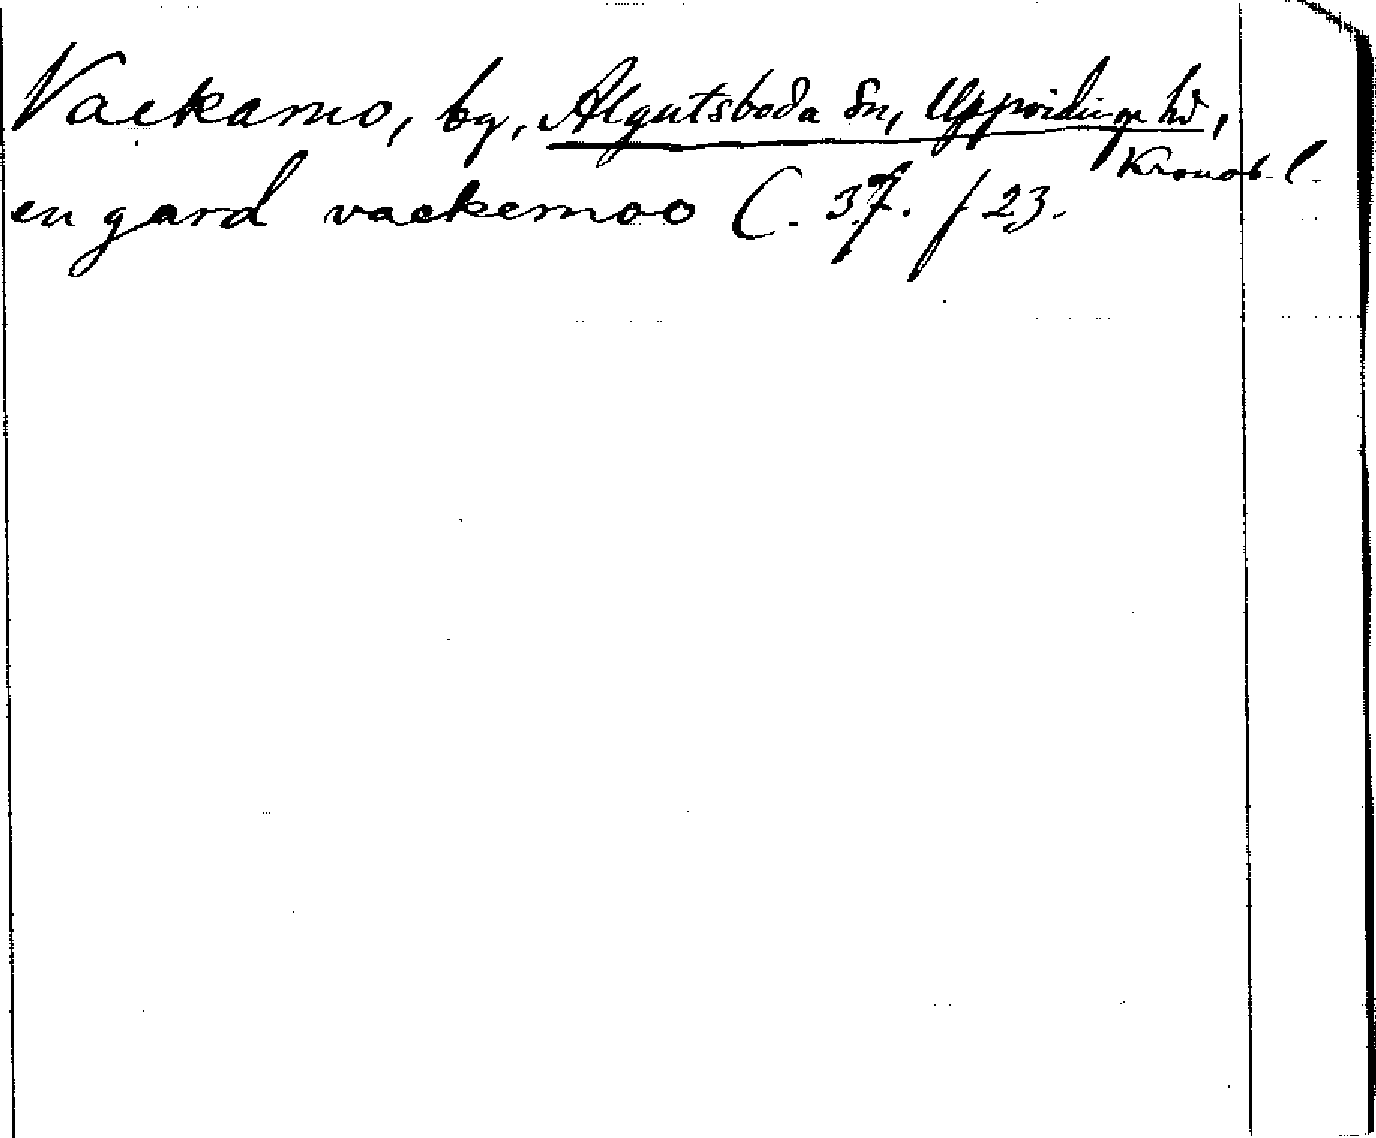 Vackamo, by, Algutsboda sn, Uppvidinge hd,
Kronob. l.
en gard vackemoo C. 37. f 23.